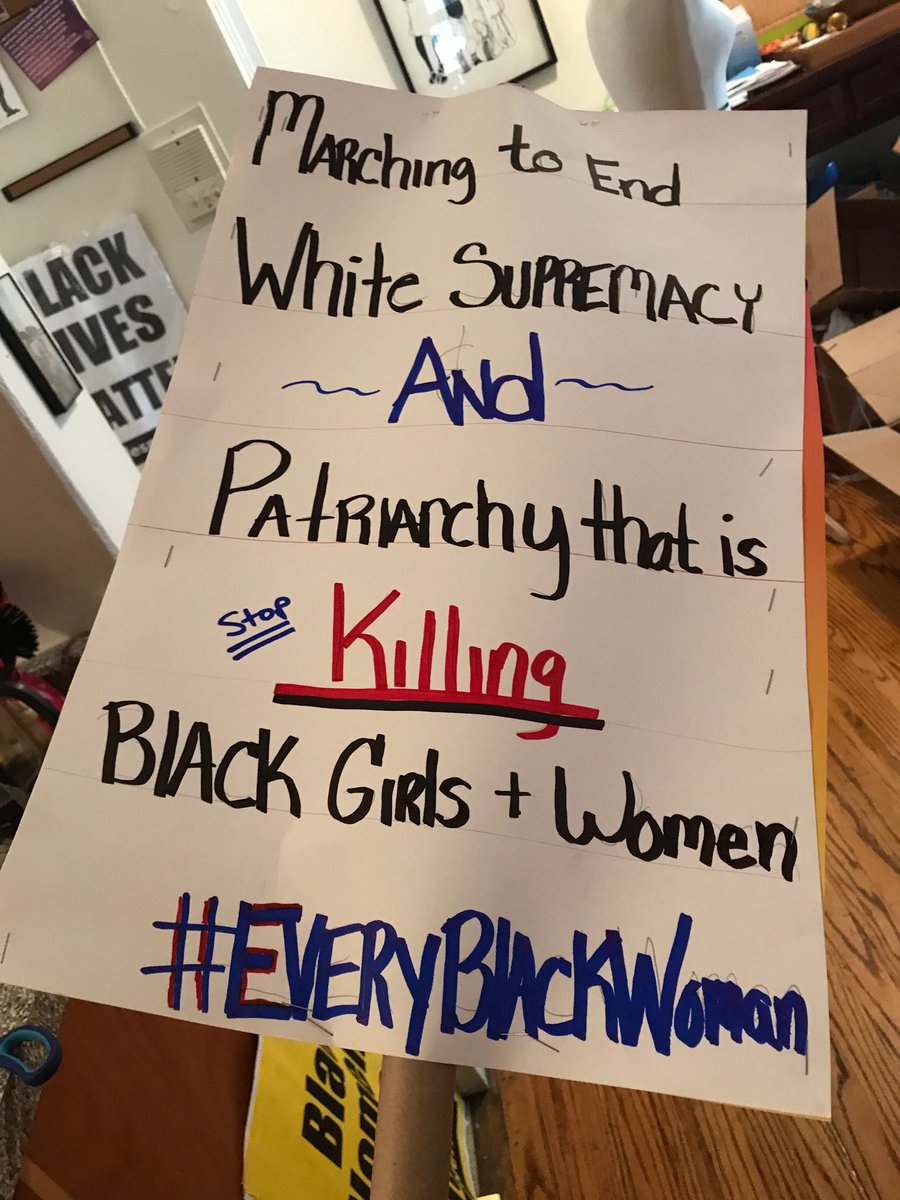 MARching to End
White SUPREMACY
~ANd~
PAtRIARchy that is
Stop Killing
BlACK GiRls + Women
#EVERYBlACKWoman
LACK
IVES
ATTE
Bla